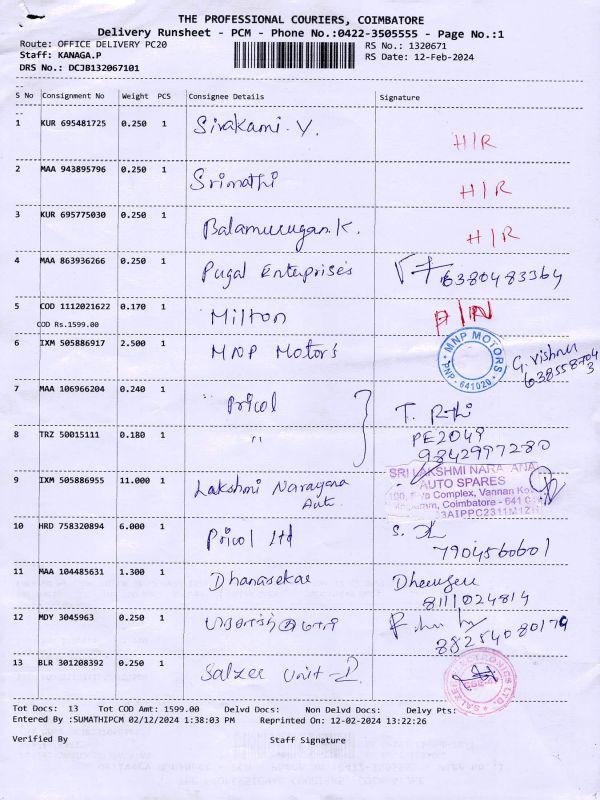 THE PROFESSIONAL COURIERS, COIMBATORE
Delivery Runsheet - PCM - Phone No.:0422-3505555 - Page No.:1
Route: OFFICE DELIVERY PC20 RS No.: 1320671
Staff: KANAGA.P RS Date: 12-Feb-2024
DRS No.: DCJB132067101
S No Consignment No Weight PCS Consignee Details Signature
1 KUR 695481725 0.250 1 Sivakami. V. H/R
2 MAA 943895796 0.250 1 Srimathi H/R
3 KUR 695775030 0.250 1 Balamurugan.K. H/R
4 MAA 863936266 0.250 1 Pugal Enterprises 6380483364
5 COD 1112021622 0.170 1 Milton
COD Rs.1599.00
6 IXM 505886917 2.500 1 MNP Motor's
MNP MOTORS
PNP - 641020
G. Vishnu
7 MAA 106966204 0.240 1 Pricol
8 TRZ 50015111 0.180 1 "
PE2049
9842997280
9 IXM 505886955 11.000 1 Lakshmi Narayana
Auto
SRI LAKSHMI NARA ANA
AUTO SPARES
Complex, Vannan
Coimbatore - 641
10 HRD 758320894 6.000 1 Pricol Ltd
7904560601
11 MAA 104485631 1.300 1 Dhanasekar
8111024814
12 MDY 3045963 0.250 1
13 BLR 301208392 0.250 1 Salzer Unit-I
Tot Docs: 13 Tot COD Amt: 1599.00 Delvd Docs: Non Delvd Docs: Delvy Pts:
Entered By :SUMATHIPCM 02/12/2024 1:38:03 PM Reprinted On: 12-02-2024 13:22:26
Verified By Staff Signature